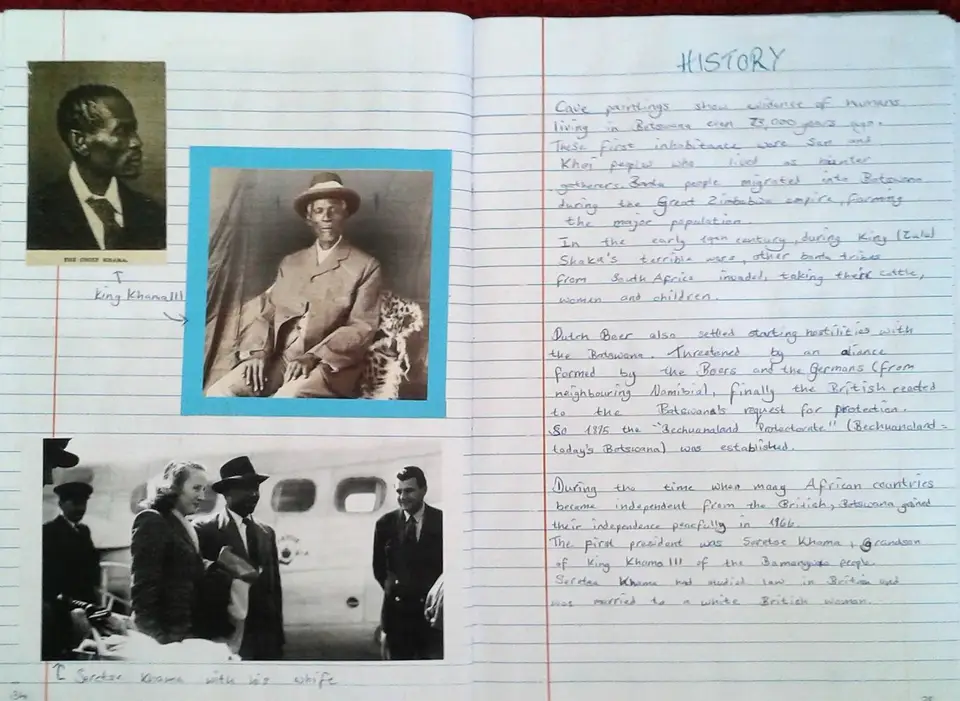 THE CHIEF KHAMA.
King Khama III
Seretse Khama with his whife
34
HISTORY
Cave paintings show evidence of humans
living in Botswana even 73,000 years ago.
These first inhabitance were San and
Khoi peoples who lived as hunter
gatherers. Bantu people migrated into Botswana
during the Great Zimbabwe empire, forming
the major population.
In the early 19th century, during King (Zulu)
Shaka's terrible wars, other bantu tribes
from South Africa invaded, taking their cattle,
women and children.
Dutch Boer also settled starting hostilities with
the Botswana. Threatened by an aliance
formed by the Boers and the Germans (from
neighbouring Namibia), finally the British reacted
to the Botswana's request for protection.
So 1885 the "Bechuanaland Protectorate" (Bechuanaland =
today's Botswana) was established.
During the time when many African countries
became independent from the British, Botswana gained
their independence peacfully in 1966.
The first president was Seretse Khama, Grandson
of King Khama III of the Bamangwato people.
Seretse Khama had studied law in Britian and
was married to a white British woman.